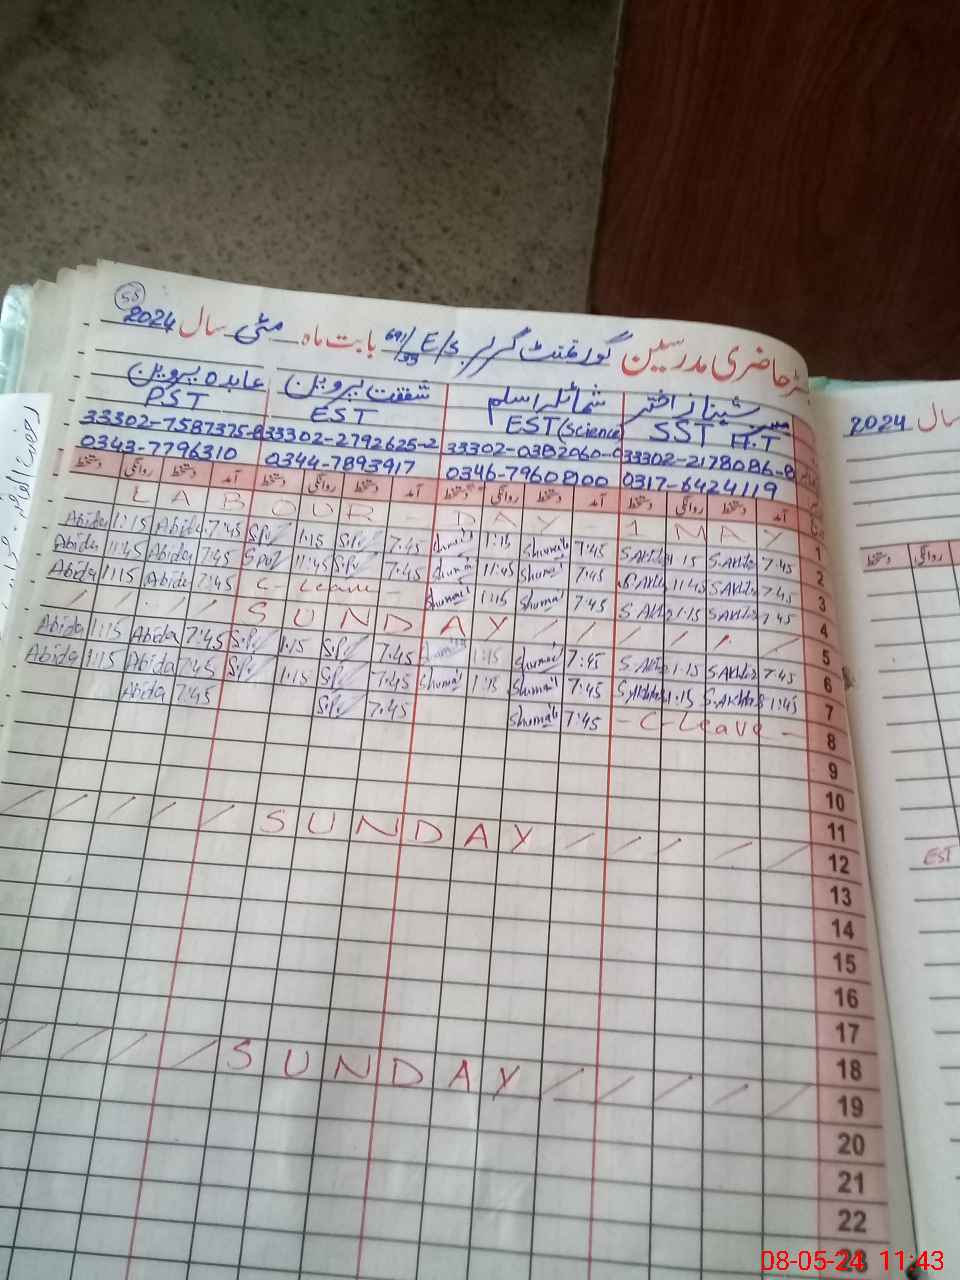 55
رجسٹر حاضری مدرسین گورنمنٹ گرلز E/S 691/35 بابت ماہ مئی سال 2024
مس شہناز اختر شمائلہ اسلم شفقت پروین عابدہ پروین
SST H.T EST (Science) EST PST
33302-2178086-8 33302-0382060- 33302-2792625-2 33302-7587375-8
0317-6424119 0346-7960800 0344-7893917 0343-7796310
آمد دستخط روانگی دستخط آمد دستخط روانگی دستخط آمد دستخط روانگی دستخط آمد دستخط روانگی دستخط
LABOUR - DAY - 1 MAY 1
Abida 1:15 Abida 7:45 S.P. 1:15 S.P. 7:45 Shumail 1:15 Shumail 7:45 S.Akhter 1:15 S.Akhter 7:45 2
Abida 11:45 Abida 7:45 S.P. 11:45 S.P. 7:45 Shumail 11:45 Shumail 7:45 S.Akhter 11:45 S.Akhter 7:45 3
Abida 1:15 Abida 7:45 C-Leave - Shumail 1:15 Shumail 7:45 S.Akhter 1:15 S.Akhter 7:45 4
/ / / / SUNDAY / / / / / / 5
Abida 1:15 Abida 7:45 S.P. 1:15 S.P. 7:45 Shumail 1:15 Shumail 7:45 S.Akhter 1:15 S.Akhter 7:45 6
Abida 1:15 Abida 7:45 S.P. 1:15 S.P. 7:45 Shumail 1:15 Shumail 7:45 S.Akhter 1:15 S.Akhter 1:45 7
Abida 7:45 S.P. 7:45 Shumail 7:45 - C-Leave - 8
9
10
11
/ / / / / SUNDAY / / / / / 12
13
14
15
16
17
18
/ / / / SUNDAY / / / / / 19
20
21
22
23
سال 2024
دستخط روانگی
EST
08-05-24 11:43